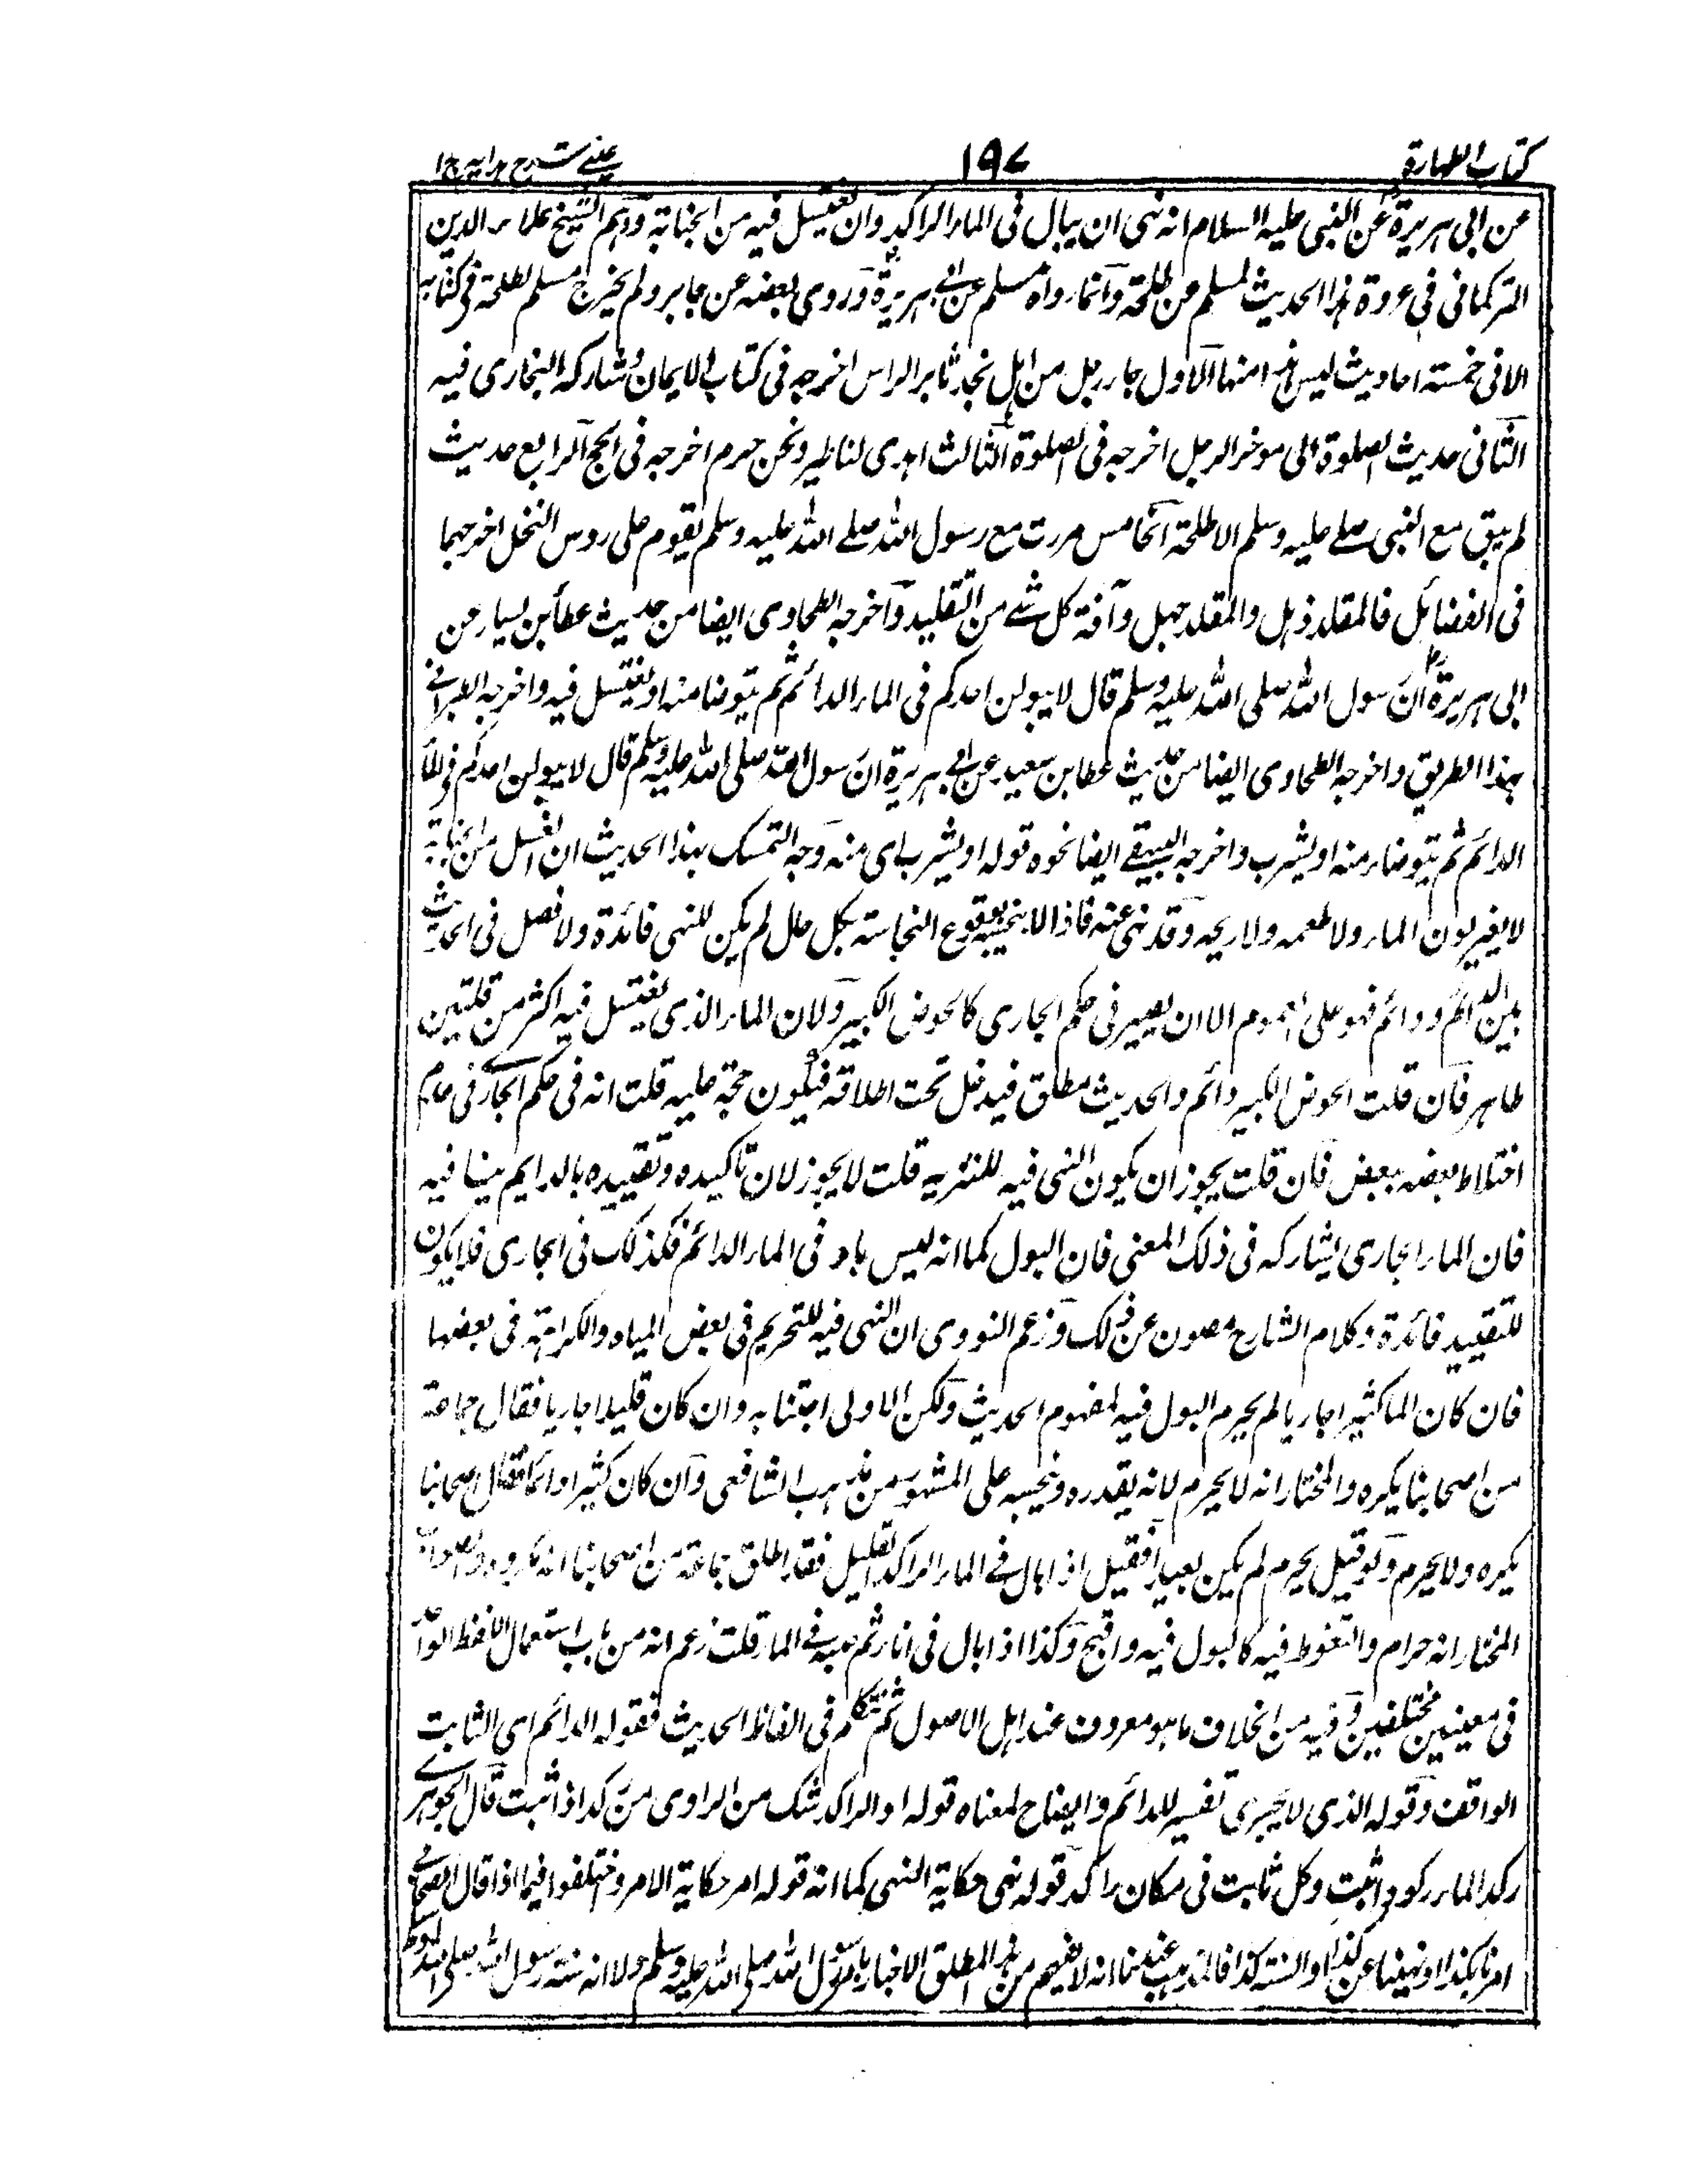 كتاب الطهارة
١٩٧
عيني شرح هدايه ج ١
عن ابي هريرة رض عن النبي عليه السلام انه نهى ان يبال في الماء الراكد وان يغتسل فيه من الجنابة ووهم الشيخ علاء الدين
التركماني في عزوة هذا الحديث لمسلم عن طلحة وانما رواه مسلم عن ابي هريرة رض وروى بعضه عن جابر ولم يخرج مسلم لطلحة في كتابه
الا في خمسة احاديث ليس هذا منها الاول جاء رجل من اهل نجد ثائر الراس اخرجه في كتاب الايمان وشاركه البخاري فيه
الثاني حديث الصلوة الى موخر الرحل اخرجه في الصلوة الثالث اهدي لنا طير ونحن حرم اخرجه في الحج الرابع حديث
لم يبق مع النبي صلے عليه وسلم الا طلحة الخامس مررت مع رسول الله صلے الله عليه وسلم بقوم على روس النخل اخرجهما
في الفضائل فالمقلد ذهل والمقلد جهل وآفة كل شے من التقليد واخرجه الطحاوي ايضا من حديث عطأ بن يسار عن
ابي هريرة رض ان رسول الله صلى الله عليه وسلم قال لا يبولن احدكم في الماء الدائم ثم يتوضا منه او يغتسل فيه واخرجه الطبراني
بهذا الطريق واخرجه الطحاوي ايضا من حديث عطا بن سعيد عن ابي هريرة ان رسول الله صلى الله عليه وسلم قال لا يبولن احدكم في الماء
الدائم ثم يتوضاء منه او يشرب واخرجه البيهقي ايضا نحوه قوله او يشرب اي منه وجه التمسك بهذا الحديث ان الغسل من الجنابة
لا يغير لون الماء ولا طعمه ولا ريحه وقد نهى عنه فاذا لا ينجسه بوقوع النجاسة بكل حال لم يكن للنهي فائدة ولا فصل في الحديث
بين دائم ودائم فهو على العموم الا ان يصير في حكم الجاري كالحوض الكبير ولان الماء الذي يغتسل فيه اكثر من قلتين
طاهر فان قلت الحوض الكبير دائم والحديث مطلق فيدخل تحت اطلاقه فيكون حجة عليه قلت انه في حكم الجاري في عدم
اختلاط بعضه ببعض فان قلت يجوز ان يكون النهي فيه للتنزيه قلت لا يجوز لان تاكيده وتقييده بالدايم ينافيه
فان الماء الجاري يشاركه في ذلك المعنى فان البول كما انه ليس باد في الماء الدائم فكذلك في الجاري فلا يكون
للتقييد فائدة وكلام الشارح مصون عن ذلك وزعم النووي ان النهي فيه للتحريم في بعض المياه والكراهة في بعضها
فان كان الما كثيرا جاريا لم يحرم البول فيه لمفهوم الحديث ولكن الاولى اجتنابه وان كان قليلا جاريا فقال جماعة
من اصحابنا يكره والمختار انه لا يحرم لانه يقدره وينجسه على المشهور من مذهب الشافعي وان كان كثيرا دائما فقال اصحابنا
يكره ولا يحرم ولو قيل يحرم لم يكن بعيدا فقيل اذا بال في الماء الراكد القليل فقد اطلق جماعة من اصحابنا انه مكروه والصواب
المختار انه حرام والتغوط فيه كالبول فيه واقبح وكذا اذا بال في اناء ثم صبه في الماء قلت زعم انه من باب استعمال اللفظ الواحد
في معنيين مختلفين وفيه من الخلاف ما هو معروف عند اهل الاصول ثم نتكلم في الفاظ الحديث فقوله الدائم اي الثابت
الواقف وقوله الذي لا يجري تفسير للدائم وايضاح لمعناه قوله او الراكد شك من الراوي من ركد اذا ثبت قال الجوهري
ركد الماء ركودا ثبت وكل ثابت في مكان راكد قوله نهى حكاية النهي كما انه قوله امر حكاية الامر واختلفوا فيما اذا قال الصحابي
امرنا بكذا او نهينا عن كذا او السنة كذا فالمذهب عندنا انه لا يفهم من هذا المطلق الاخبار بامر رسول الله صلى الله عليه وسلم ولا انه سنة رسول الله صلى الله